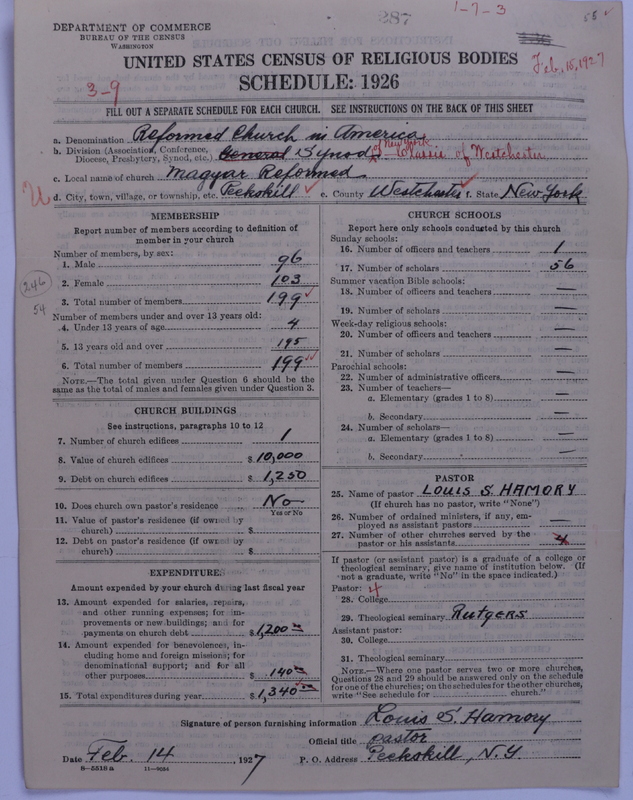 287
1-7-3
DEPARTMENT OF COMMERCE
BUREAU OF THE CENSUS
WASHINGTON
UNITED STATES CENSUS OF RELIGIOUS BODIES
Feb. 15, 1927
SCHEDULE: 1926
3-9
FILL OUT A SEPARATE SCHEDULE FOR EACH CHURCH. SEE INSTRUCTIONS ON THE BACK OF THIS SHEET
a. Denomination Reformed Church in America
b. Division (Association, Conference, Diocese, Presbytery, Synod, etc.) General Synod of New York Classis of Westchester
c. Local name of church Magyar Reformed
d. City, town, village, or township, etc. Peekskill e. County Westchester f. State New York
MEMBERSHIP
Report number of members according to definition of
member in your church
Number of members, by sex:
1. Male 96
2. Female 103
3. Total number of members 199
246
54
Number of members under and over 13 years old:
4. Under 13 years of age 4
5. 13 years old and over 195
6. Total number of members 199
NOTE.—The total given under Question 6 should be the
same as the total of males and females given under Question 3.
CHURCH BUILDINGS
See instructions, paragraphs 10 to 12
7. Number of church edifices 1
8. Value of church edifices $ 10,000
9. Debt on church edifices $ 1,250
10. Does church own pastor's residence No
Yes or No
11. Value of pastor's residence (if owned by
church) $
12. Debt on pastor's residence (if owned by
church) $
EXPENDITURES
Amount expended by your church during last fiscal year
13. Amount expended for salaries, repairs,
and other running expenses; for im-
provements or new buildings; and for
payments on church debt $ 1,200
14. Amount expended for benevolences, in-
cluding home and foreign missions; for
denominational support; and for all
other purposes $ 140
15. Total expenditures during year $ 1,340
CHURCH SCHOOLS
Report here only schools conducted by this church
Sunday schools:
16. Number of officers and teachers 1
17. Number of scholars 56
Summer vacation Bible schools:
18. Number of officers and teachers —
19. Number of scholars —
Week-day religious schools:
20. Number of officers and teachers —
21. Number of scholars —
Parochial schools:
22. Number of administrative officers —
23. Number of teachers—
a. Elementary (grades 1 to 8) —
b. Secondary —
24. Number of scholars—
a. Elementary (grades 1 to 8) —
b. Secondary —
PASTOR
25. Name of pastor LOUIS S. HAMORY
(If church has no pastor, write "None")
26. Number of ordained ministers, if any, em-
ployed as assistant pastors —
27. Number of other churches served by the
pastor or his assistants
If pastor (or assistant pastor) is a graduate of a college or
theological seminary, give name of institution below. (If
not a graduate, write "No" in the space indicated.)
Pastor: 4
28. College
29. Theological seminary RUTGERS
Assistant pastor:
30. College
31. Theological seminary
NOTE.—Where one pastor serves two or more churches,
Questions 28 and 29 should be answered only on the schedule
for one of the churches; on the schedules for the other churches,
write "See schedule for church."
Signature of person furnishing information Louis S. Hamory
Official title pastor
Date Feb. 14, 1927 P. O. Address Peekskill, N.Y.
8-5518a 11-9034